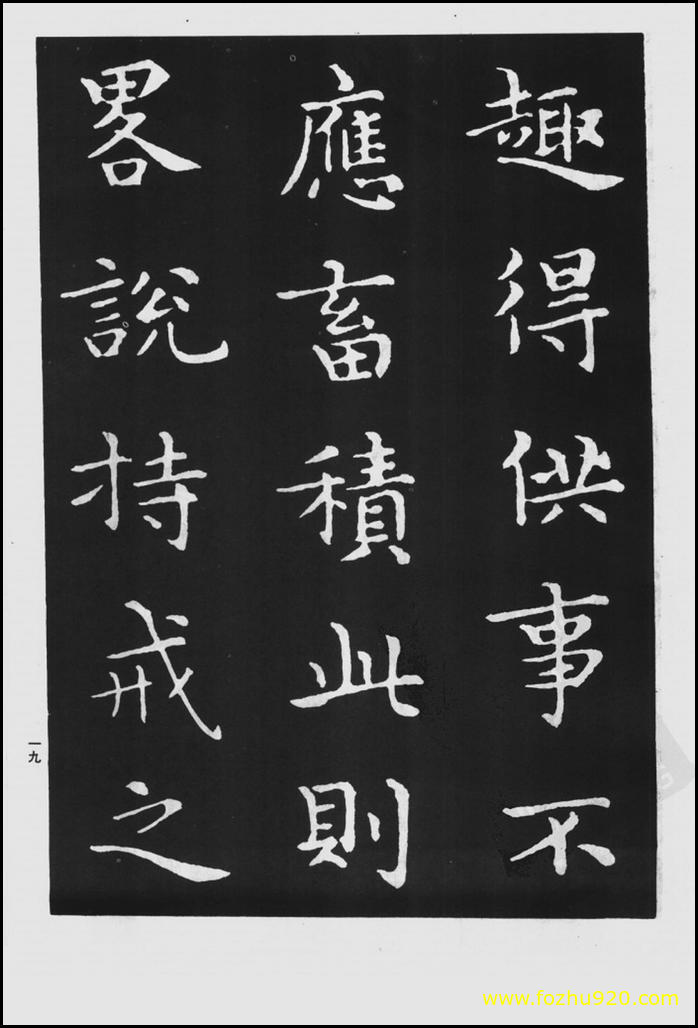 趣得供事不
應畜積此則
畧說持戒之
一九
www.fozhu920.com